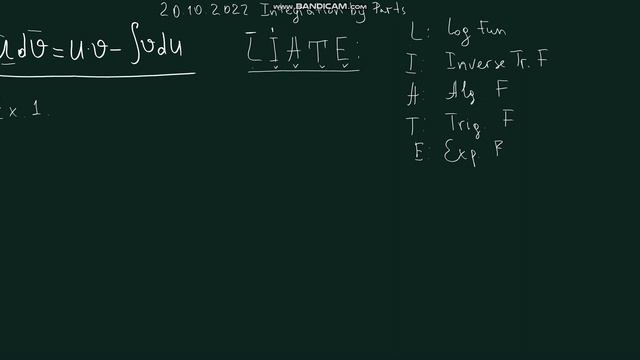 www.BANDICAM.com
20.10.2022 Integration by Parts
u dv = u·v - ∫v du
LIATE:
L: Log Fun
I: Inverse Tr. F
A: Alg F
T: Trig. F
E: Exp. F
Ex. 1.